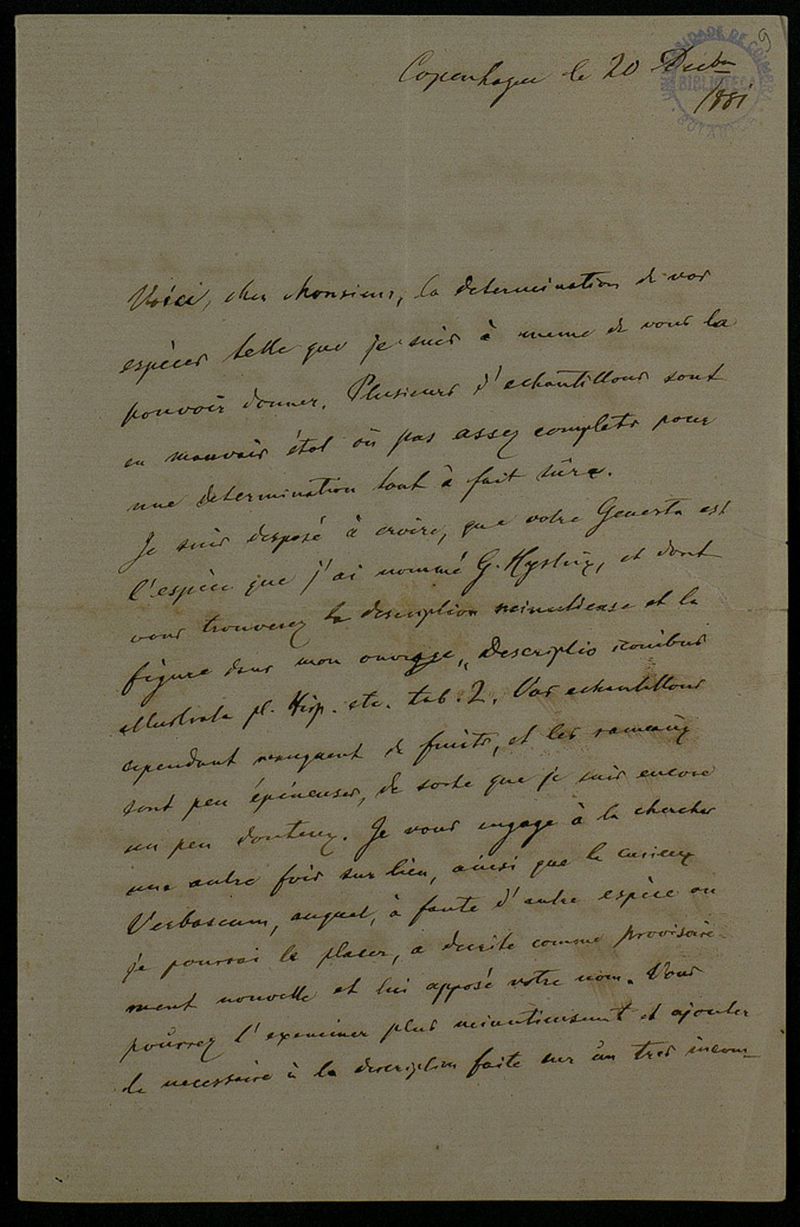 9
Copenhague le 20 Decbre
1881
UNIVERSIDADE DE COIMBRA
BIBLIOTECA
Voici, cher Monsieur, la determination de vos
espèces telle que je suis à meme de vous la
pouvoir donner. Plusieurs d'echantillons sont
en mauvais état où pas assez complets pour
une determination tout à fait sûre.
Je suis desposé à croire, que votre Genista est
l'espèce que j'ai nommé G. Hystrix, et dont
vous trouverez la description minutieuse et la
figure dans mon ouvrage „Descriptio iconibus
illustrata pl. Hisp. etc. tab. 2. Vos echantillons
cependant manquent de fruits, et les rameaux
sont peu épineuses, de sorte que je suis encore
un peu douteux. Je vous engage à la chercher
une autre fois sur lieu, ainsi que le curieux
Verbascum, auquel, à faute d'autre espèce ou
je pourrai le placer, a decrite comme provisoire-
ment nouvelle et lui apposé votre nom. Vous
pourrez l'examiner plus minutieusement et ajouter
le necessaire à la description faite sur un tres incom-